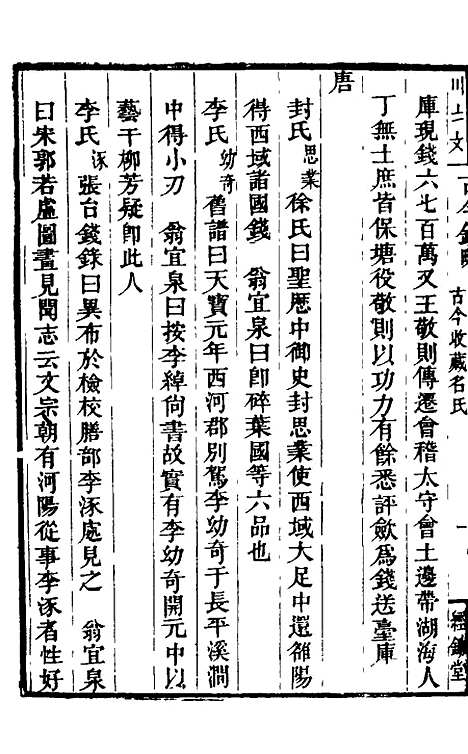 古今收藏名氏
庫現錢六七百萬又王敬則傳遷會稽太守會土邊帶湖海人
丁無土庶皆保塘役敬則以功力有餘悉評斂為錢送臺庫
唐
封氏思業徐氏曰聖歷中御史封思業使西域大足中還雒陽
得西域諸國錢　翁宜泉曰卽碎葉國等六品也
李氏幼奇舊譜曰天寶元年西河郡別駕李幼奇于長平溪澗
中得小刃　翁宜泉曰按李綽尙書故實有李幼奇開元中以
藝干柳芳疑卽此人
李氏涿張台錢錄曰異布於檢校膳部李涿處見之　翁宜泉
曰宋郭若虛圖畫見聞志云文宗朝有河陽從事李涿者性好